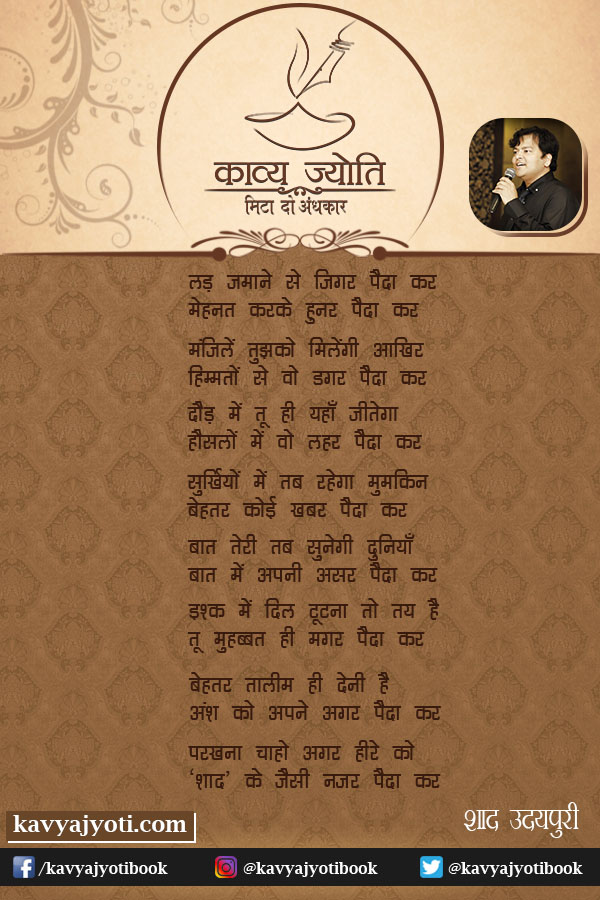 काव्य ज्योति
मिटा दो अंधकार
लड़ जमाने से जिगर पैदा कर
मेहनत करके हुनर पैदा कर
मंजिलें तुझको मिलेंगी आखिर
हिम्मतों से वो डगर पैदा कर
दौड़ में तू ही यहाँ जीतेगा
हौसलों में वो लहर पैदा कर
सुर्खियों में तब रहेगा मुमकिन
बेहतर कोई खबर पैदा कर
बात तेरी तब सुनेगी दुनियाँ
बात में अपनी असर पैदा कर
इश्क में दिल टूटना तो तय है
तू मुहब्बत ही मगर पैदा कर
बेहतर तालीम ही देनी है
अंश को अपने अगर पैदा कर
परखना चाहो अगर हीरे को
‘शाद’ के जैसी नजर पैदा कर
शाद उदयपुरी
kavyajyoti.com
/kavyajyotibook
@kavyajyotibook
@kavyajyotibook